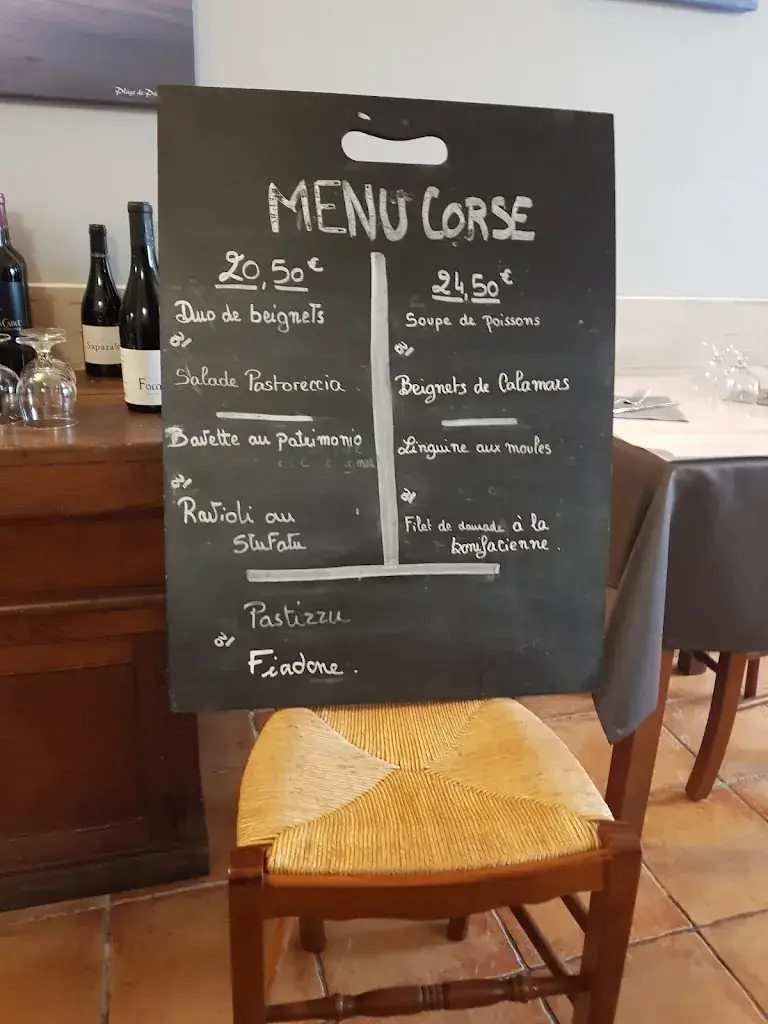 Plage de
MENU CORSE
20,50€
Duo de beignets
ou
Salade Pastoreccia
Bavette au patrimonio
ou
Ravioli au
Stufatu
24,50€
Soupe de poissons
ou
Beignets de Calamars
Linguine aux moules
ou
Filet de daurade à la
bonifacienne.
Pastizzu
ou
Fiadone.
Saparale